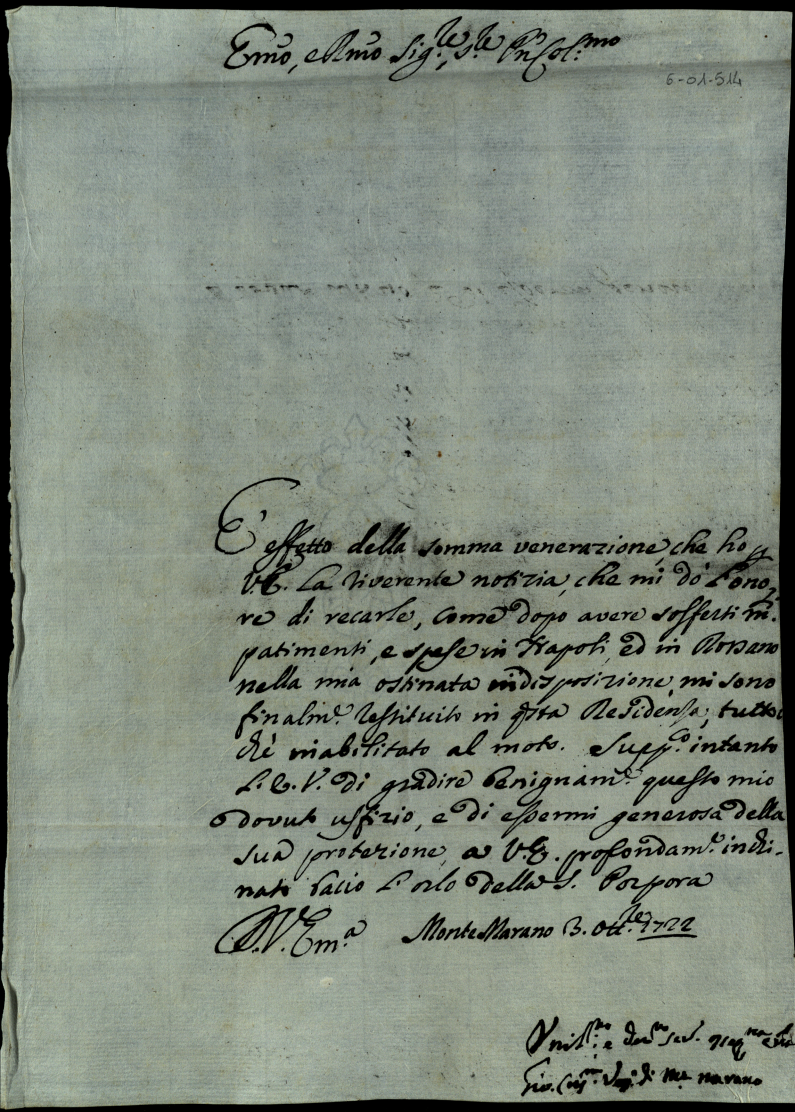 Emo, e Rmo Sig.re, S.re Pn Col.mo
6-01-514
È effetto della somma venerazione, che ho p
V.E. La riverente notizia, che mi dò l'ono,,
re di recarle, come dopo avere sofferti m.
patimenti, e spese in Napoli, ed in Rossano
nella mia ostinata indisposizione, mi sono
finalm.e restituito in qsta Residenza, tutto
chè inabilitato al moto. Supp.co intanto
L.E.V. di gradire benignam.e questo mio
dovuto uffizio, e di essermi generosa della
sua protezione, a V.E. profondam.e inchi-
nato bacio l'orlo della S. Porpora
D.V. Em.a Monte Marano 3. Ott.re 1722
Umil.mo e dev.mo ser.
Gio. Vesc.o di M.e marano